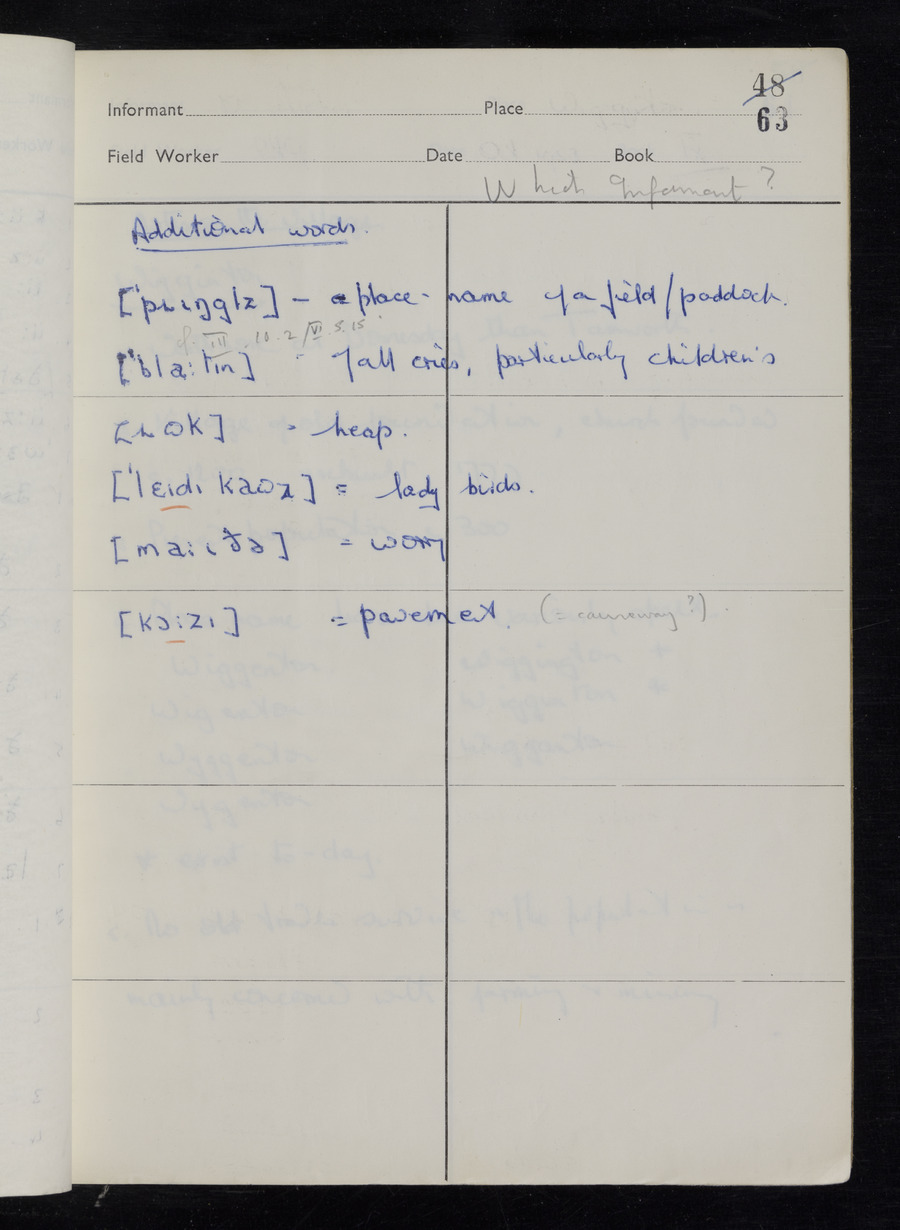 48
63
Informant Place
Field Worker Date Book
Which Informant?
Additional words.
– place-name of a field/paddock.
cf. III 10.2/VI.5.15
['bla:tɪn] – of all cries, particularly children's
= heap.
['lɛɪdɪ kaʊz] = lady birds.
= worry
[kɔ:zɪ] = pavement. (= causeway?).